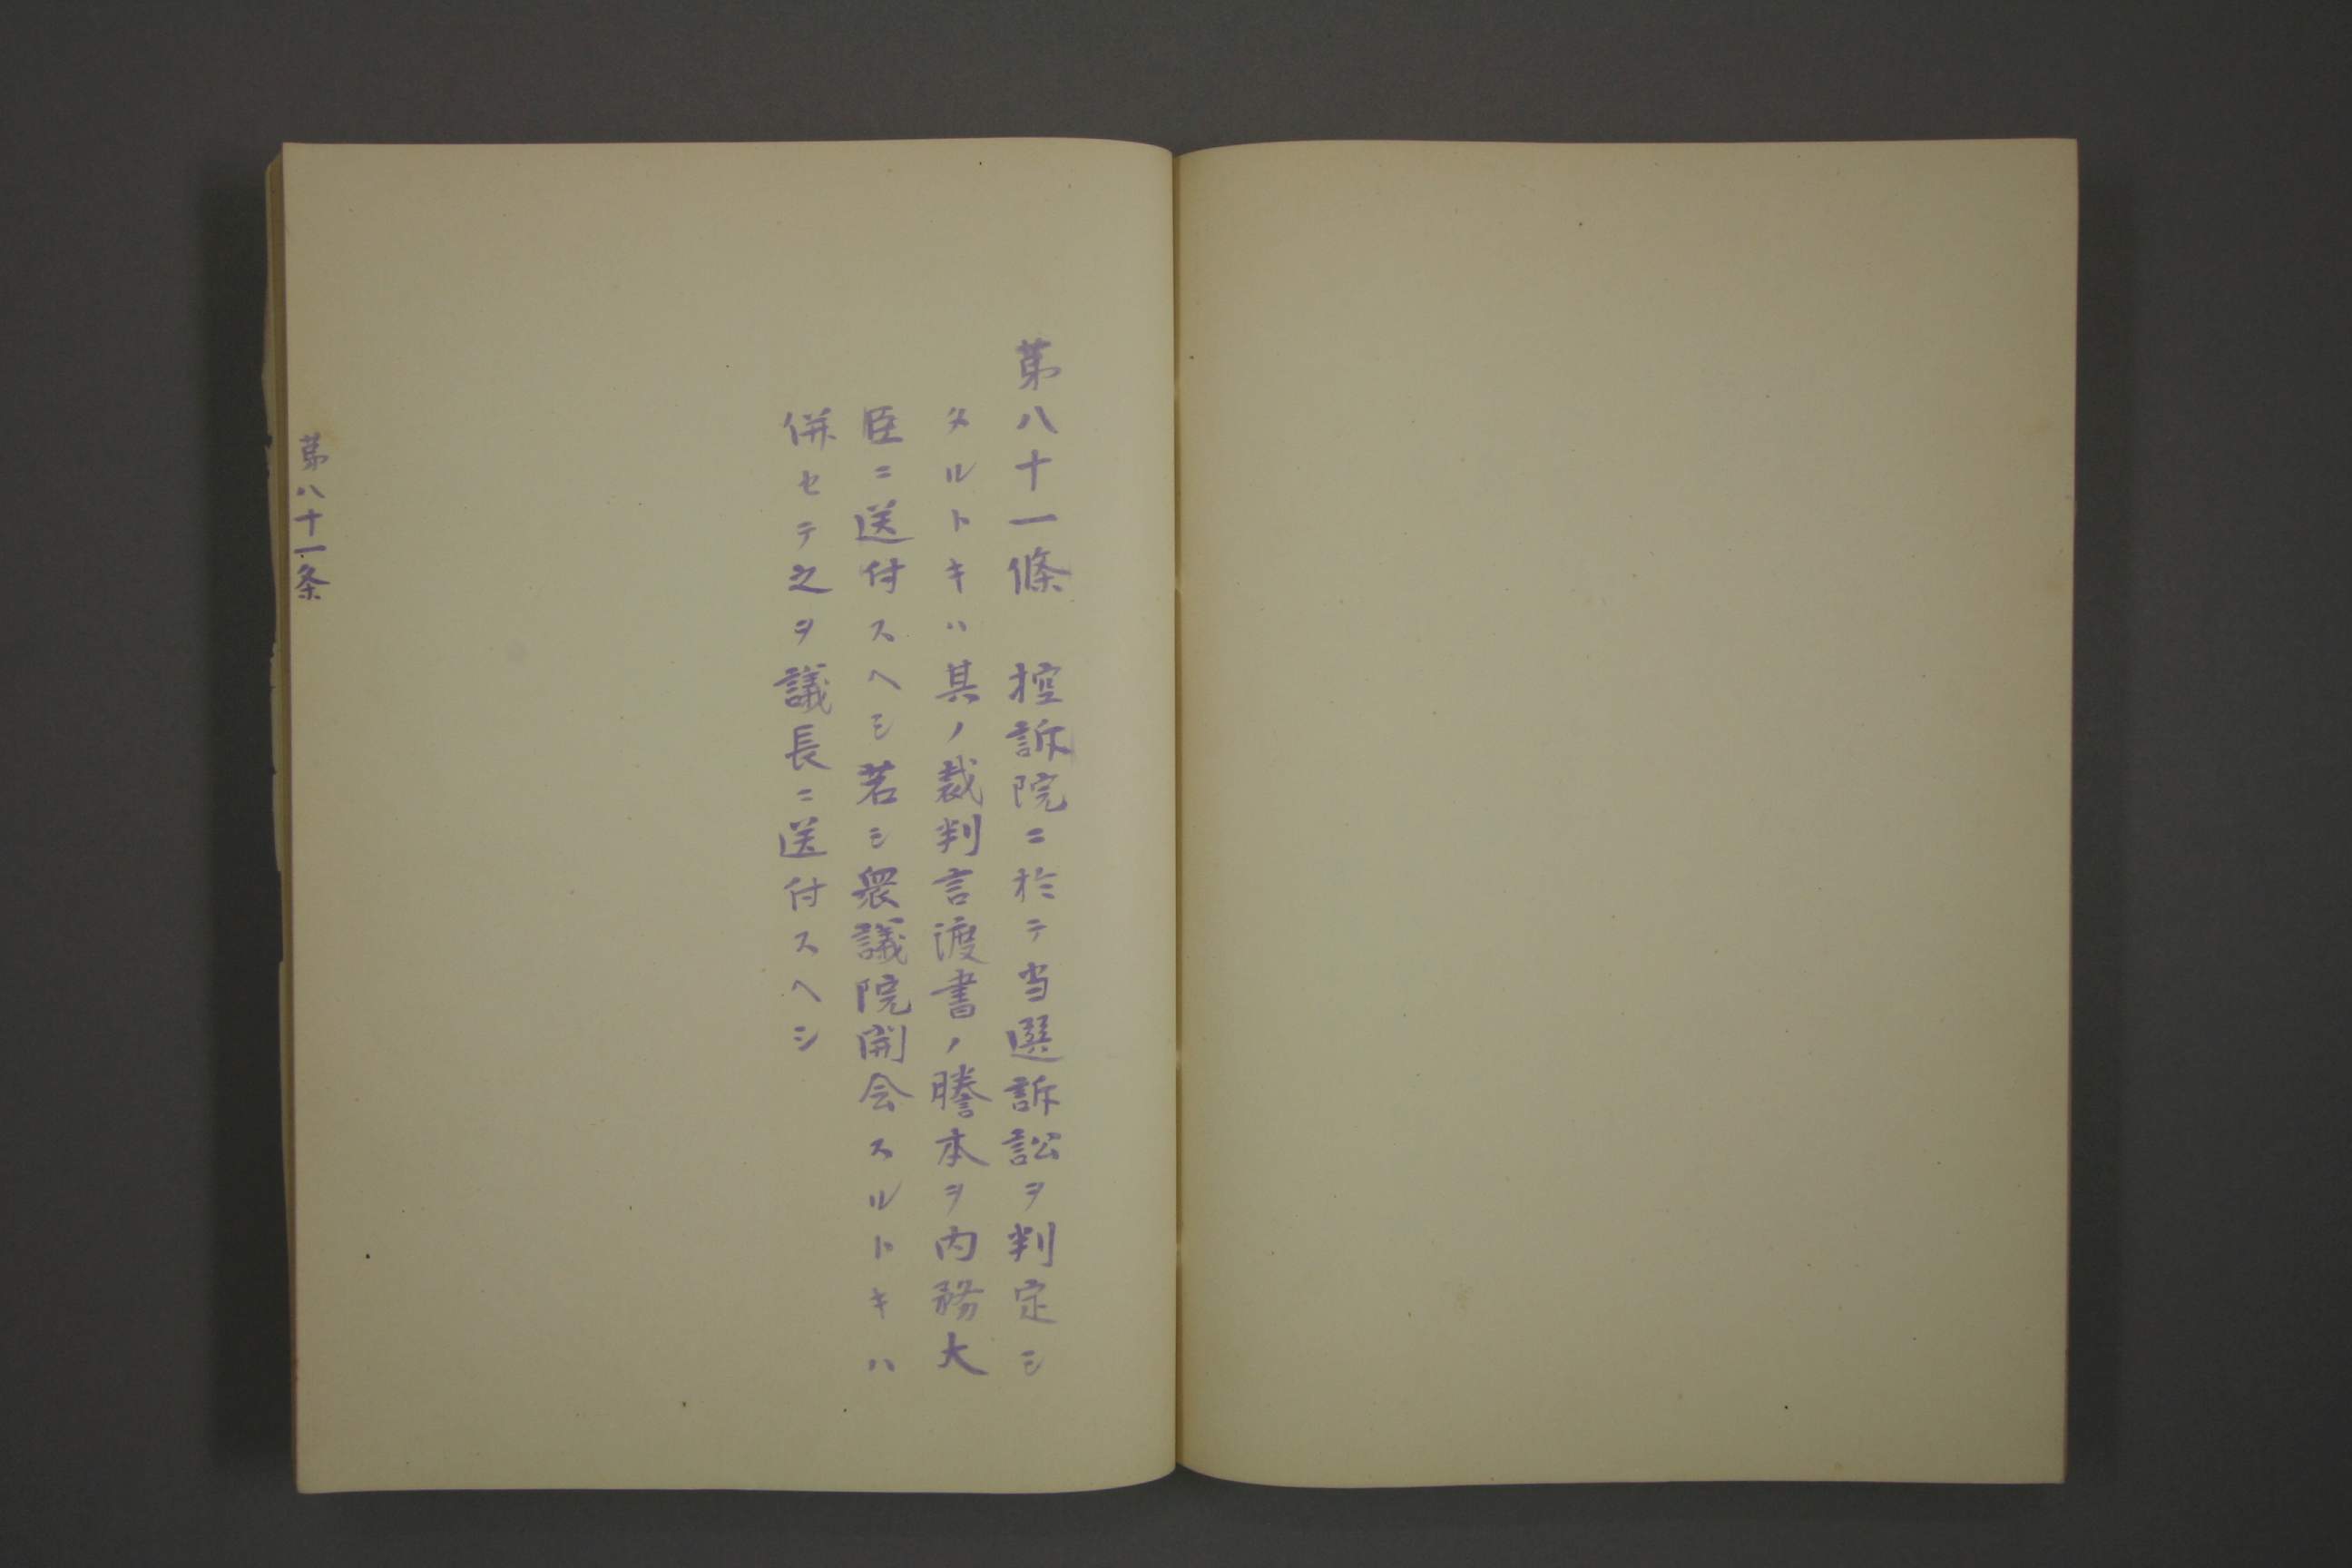 第八十一條　控訴院ニ於テ当選訴訟ヲ判定シ
タルトキハ其ノ裁判言渡書ノ謄本ヲ内務大
臣ニ送付スヘシ若シ衆議院開会スルトキハ
併セテ之ヲ議長ニ送付スヘシ
第八十一条